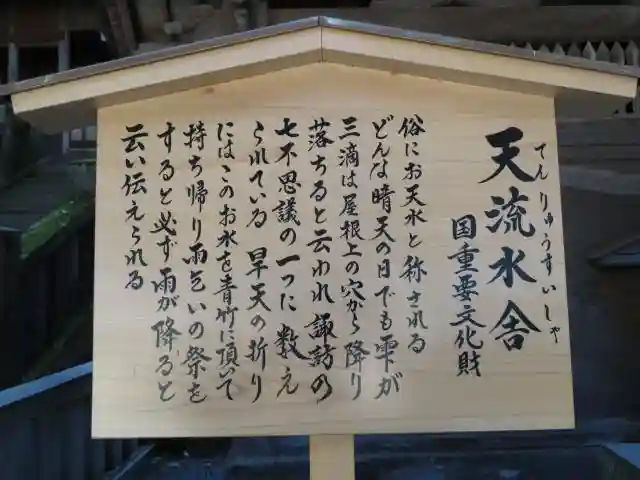 てんりゅうすいしゃ
天流水舎
国重要文化財
俗にお天水と称される
どんな晴天の日でも雫が
三滴は屋根上の穴から降り
落ちると云われ諏訪の
七不思議の一つに数え
られている 旱天の折り
にはこのお水を青竹に頂いて
持ち帰り雨乞いの祭を
すると必ず雨が降ると
云い伝えられる